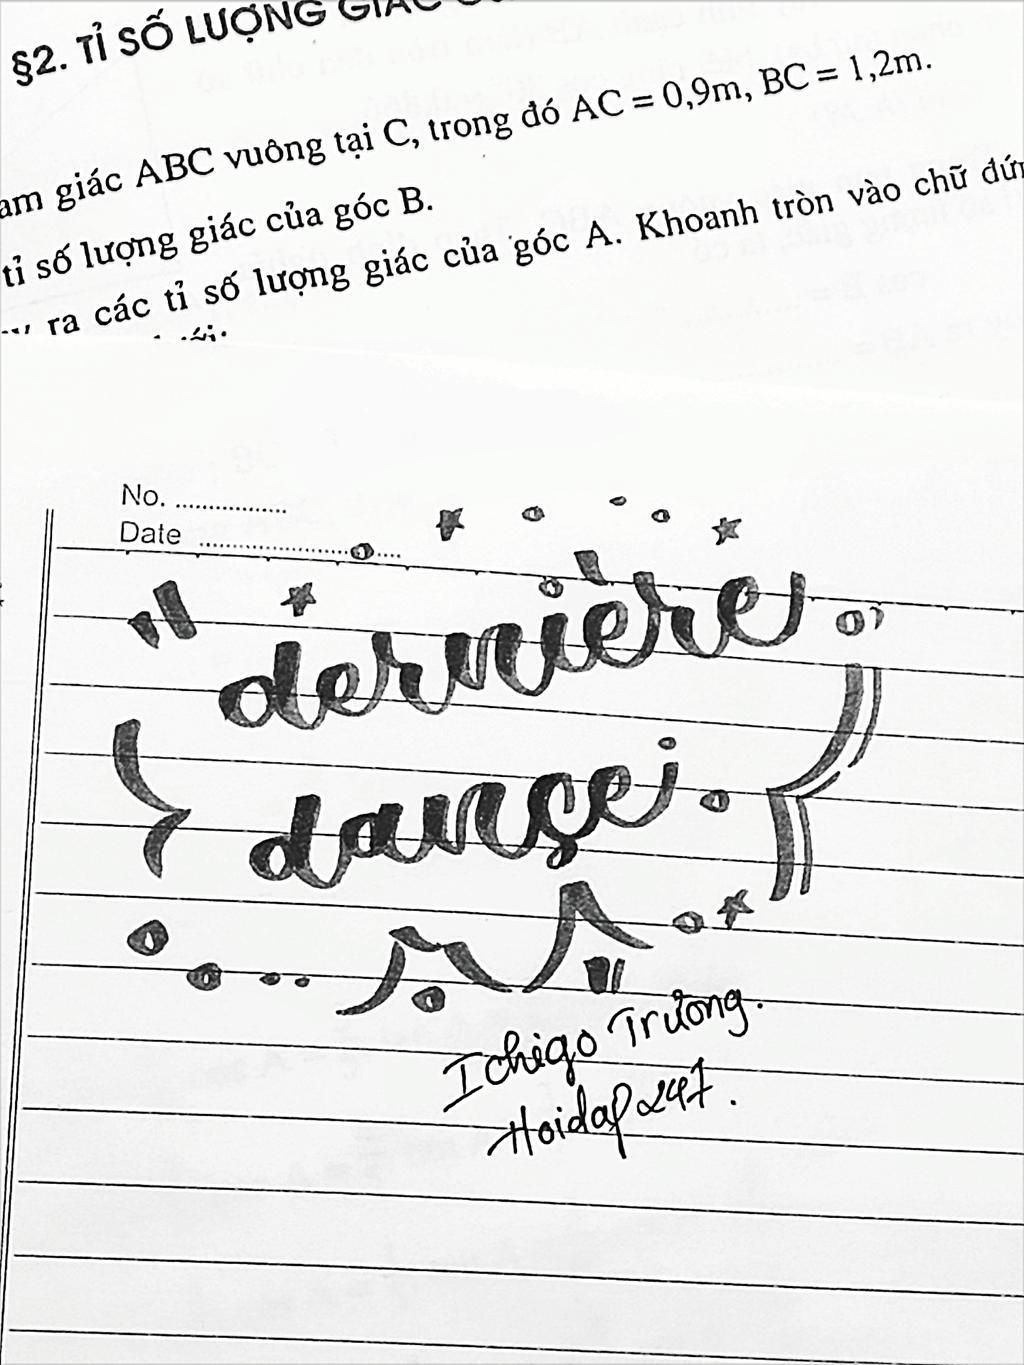 §2. TỈ SỐ LƯỢNG GIÁC
am giác ABC vuông tại C, trong đó AC = 0,9m, BC = 1,2m.
tỉ số lượng giác của góc B.
ra các tỉ số lượng giác của góc A. Khoanh tròn vào chữ đứn
No. ................
Date ................
dernière
dançe
Ichigo Trương.
Hoidap247.